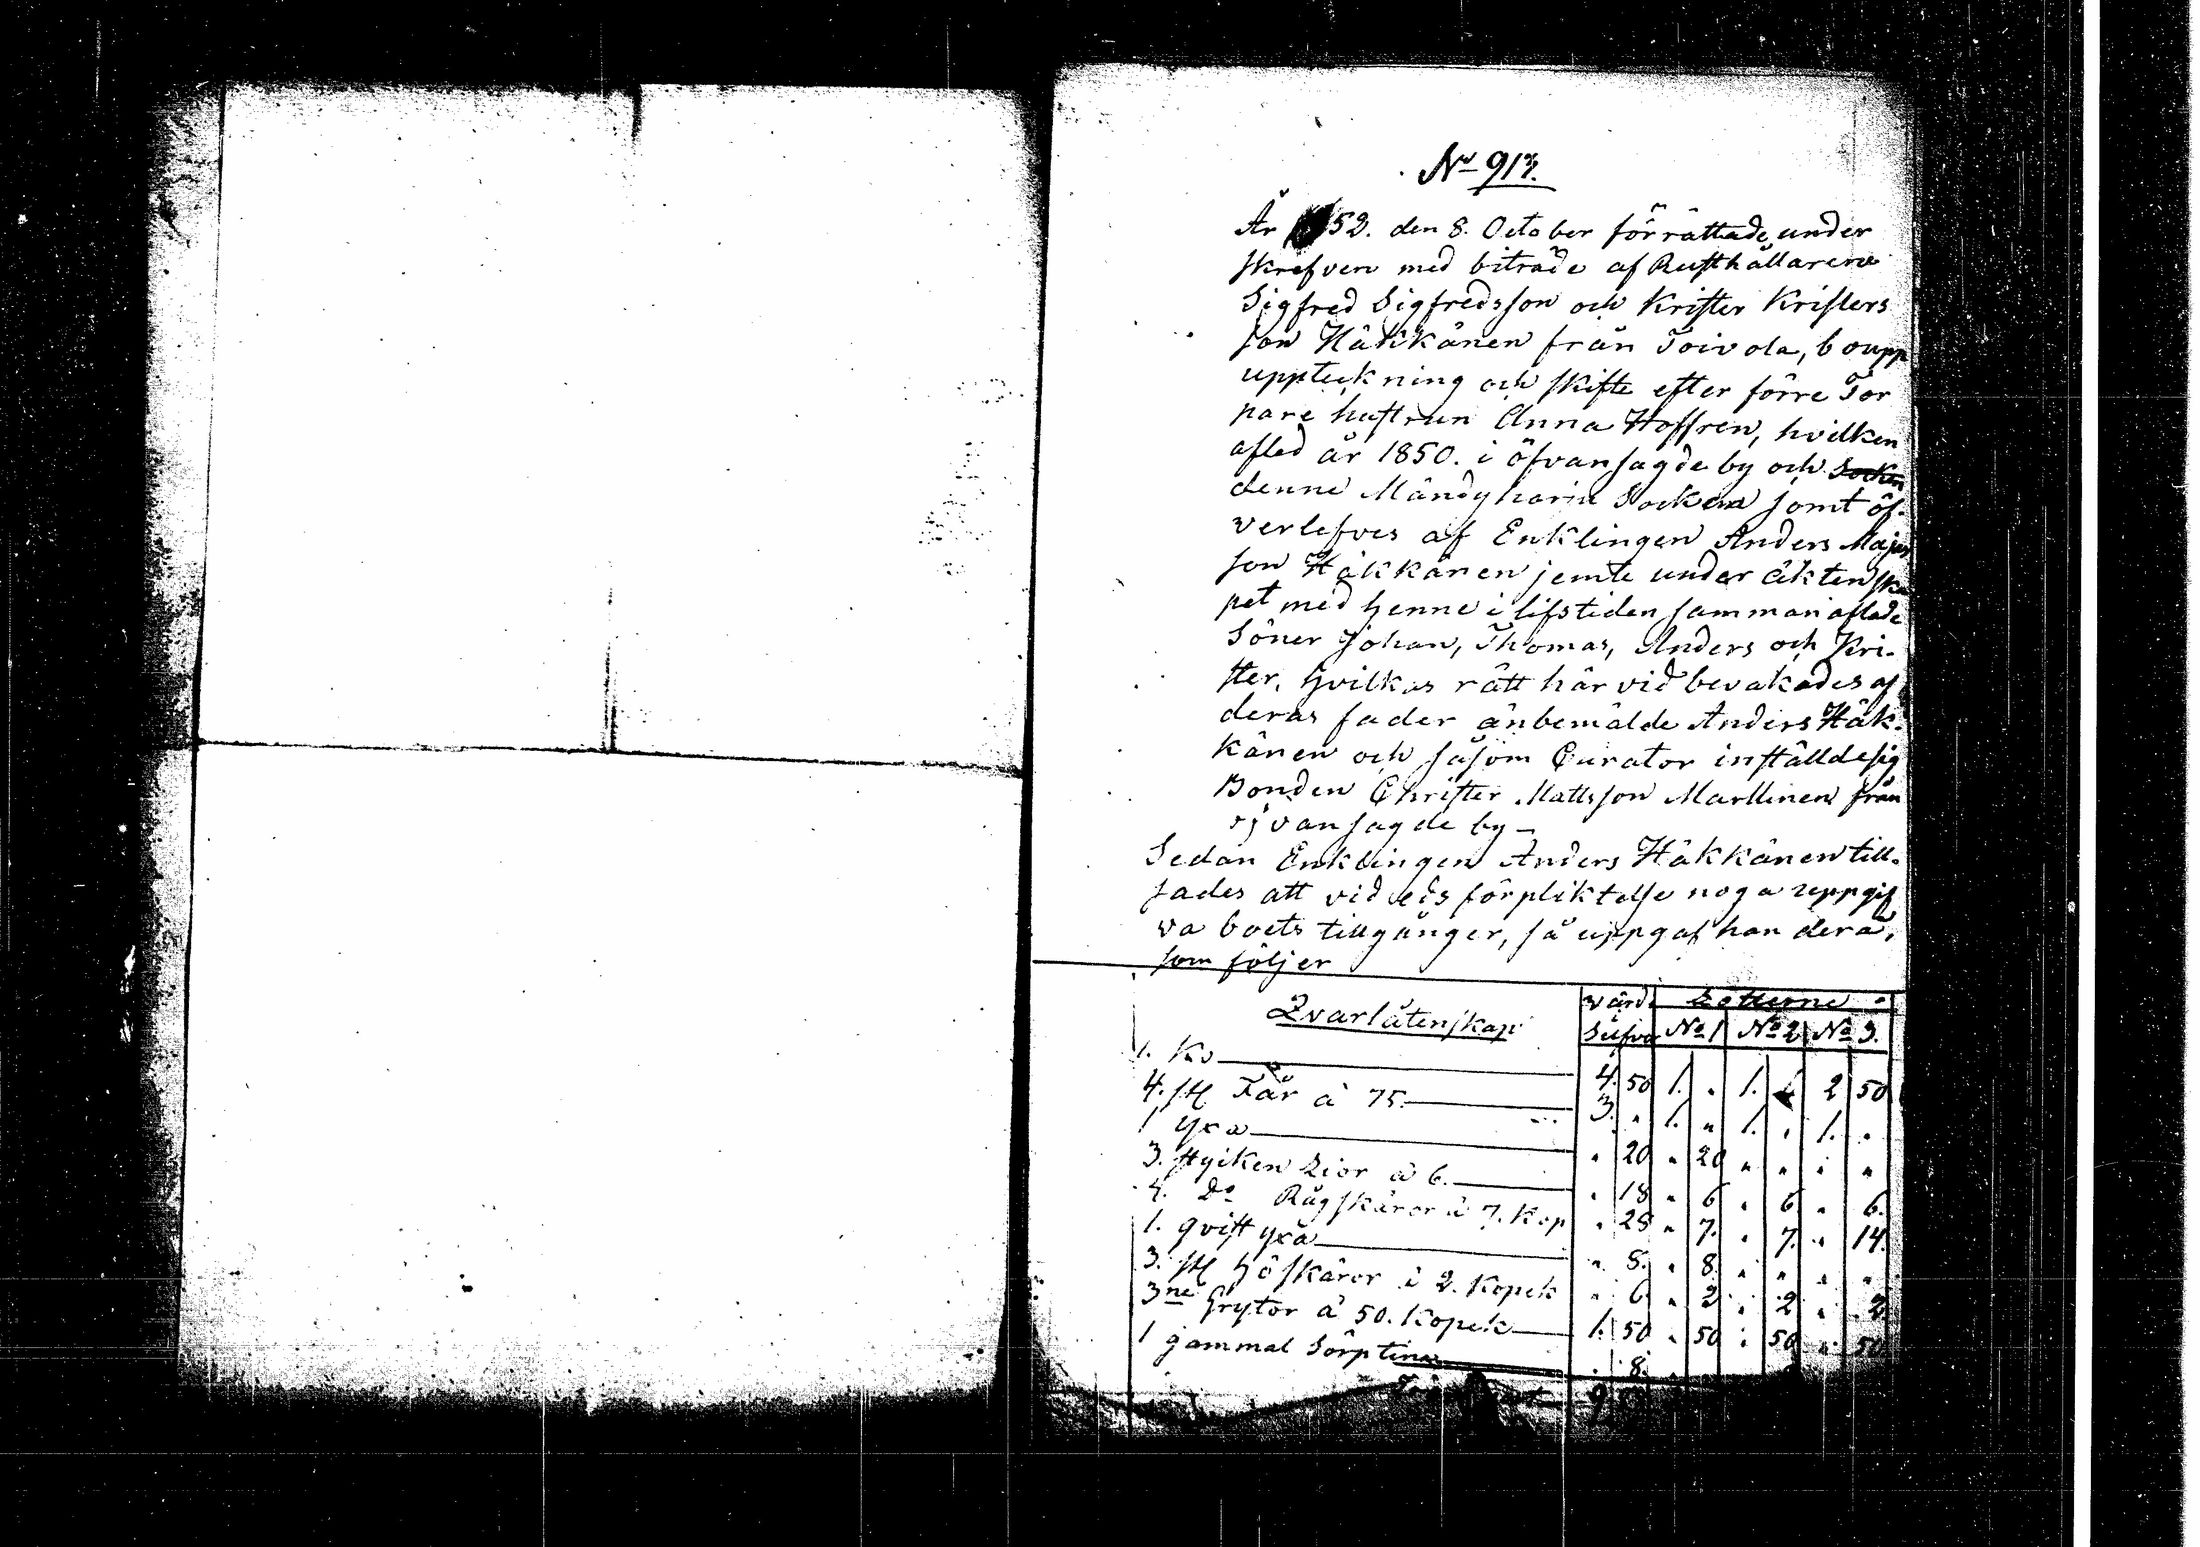 No 913.
År 1852. den 8. October förrättade under
skrefven med biträde af Rusthållarene
Sigfred Sigfredsson och Krister Kristers
son Häkkänen från Toivola, boupp
uppteckning och skifte efter förre Tor
pare hustrun Anna Hoffren, hvilken
afled år 1850. i öfvansagde by och Socken
denne Mändyharju Socken samt öf-
verlefves af Enklingen Anders Majas
son Häkkänen jemte under äktenska
pet med henne i lifstiden samman aflade
Söner Johan, Thomas, Anders och Kri-
ster, hvilkas rätt här vid bevakades af
deras fader änbemälde Anders Häk-
känen och såsom Curator inställde sig
Bonden Christer Mattsson Marttinen från
öfvansagde by –
Sedan Enklingen Anders Häkkänen till-
sades att vid eds förpliktelse noga uppgif
va boets tillgånger, så uppgaf han dera,
som följer
Qvarlåtenskap värde Lotterne
Silfver No 1 No 2 No 3.
1. Ko 4. 50 1. „ 1. 2 50
4. st Får à 75. 3. „ 1. „ 1. „ 1. „
1 Yxa „ 20 „ 20 „ „ „ „
3. stycken Lior à 6. „ 18 „ 6 „ 6 „ 6.
4. Do Rågskäror à 7. Kop „ 28 „ 7. „ 7. „ 14.
1. qvist yxa „ 8. „ 8. „ „ „ „
3. st Höskäror à 2. Kopek „ 6 „ 2 „ 2 „ 2
3ne Grytor à 50. Kopek 1. 50 „ 50 „ 50 „ 50
1 gammal Sörptina „ 8.
9